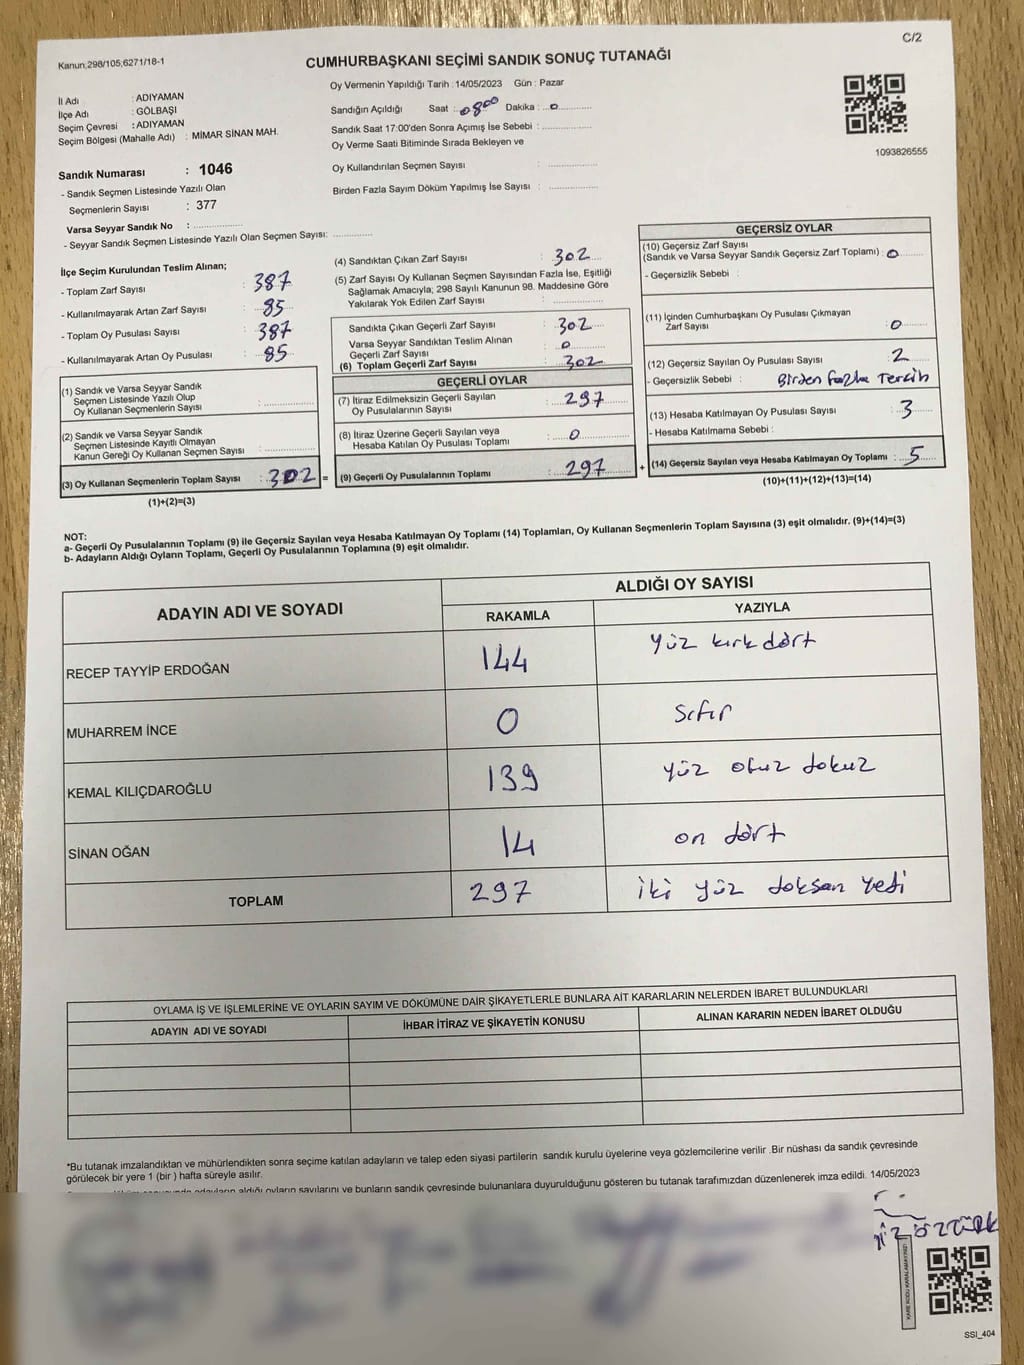 C/2
Kanun,298/105,6271/18-1
CUMHURBAŞKANI SEÇİMİ SANDIK SONUÇ TUTANAĞI
İl Adı : ADIYAMAN
İlçe Adı : GÖLBAŞI
Seçim Çevresi : ADIYAMAN
Seçim Bölgesi (Mahalle Adı) : MİMAR SİNAN MAH.
Sandık Numarası : 1046
- Sandık Seçmen Listesinde Yazılı Olan
Seçmenlerin Sayısı : 377
Varsa Seyyar Sandık No : ................
- Seyyar Sandık Seçmen Listesinde Yazılı Olan Seçmen Sayısı: ............
Oy Vermenin Yapıldığı Tarih :14/05/2023 Gün : Pazar
Sandığın Açıldığı Saat : 0800 Dakika : 0
Sandık Saat 17:00'den Sonra Açımış İse Sebebi : ................
Oy Verme Saati Bitiminde Sırada Bekleyen ve
Oy Kullandırılan Seçmen Sayısı : ................
Birden Fazla Sayım Döküm Yapılmış İse Sayısı : ................
1093826555
İlçe Seçim Kurulundan Teslim Alınan;
- Toplam Zarf Sayısı : 387
- Kullanılmayarak Artan Zarf Sayısı : 85
- Toplom Oy Pusulası Sayısı : 387
- Kullanılmayarak Artan Oy Pusulası : 85
(1) Sandık ve Varsa Seyyar Sandık
Seçmen Listesinde Yazılı Olup
Oy Kullanan Seçmenlerin Sayısı : ................
(2) Sandık ve Varsa Seyyar Sandık
Seçmen Listesinde Kayıtlı Olmayan
Kanun Gereği Oy Kullanan Seçmen Sayısı : ................
(3) Oy Kullanan Seçmenlerin Toplam Sayısı : 302 =
(1)+(2)=(3)
(4) Sandıktan Çıkan Zarf Sayısı : 302
(5) Zarf Sayısı Oy Kullanan Seçmen Sayısından Fazla İse, Eşitliği
Sağlamak Amacıyla; 298 Sayılı Kanunun 98. Maddesine Göre
Yakılarak Yok Edilen Zarf Sayısı : ................
Sandıkta Çıkan Geçerli Zarf Sayısı : 302
Varsa Seyyar Sandıktan Teslim Alınan
Geçerli Zarf Sayısı : 0
(6) Toplam Geçerli Zarf Sayısı : 302
GEÇERLİ OYLAR
(7) İtiraz Edilmeksizin Geçerli Sayılan
Oy Pusulalarının Sayısı : 297
(8) İtiraz Üzerine Geçerli Sayılan veya
Hesaba Katılan Oy Pusulası Toplamı : 0
(9) Geçerli Oy Pusulalarının Toplamı : 297 +
GEÇERSİZ OYLAR
(10) Geçersiz Zarf Sayısı
(Sandık ve Varsa Seyyar Sandık Geçersiz Zarf Toplamı) : 0
- Geçersizlik Sebebi :
(11) İçinden Cumhurbaşkanı Oy Pusulası Çıkmayan
Zarf Sayısı : 0
(12) Geçersiz Sayılan Oy Pusulası Sayısı : 2
- Geçersizlik Sebebi : Birden fazla Tercih
(13) Hesaba Katılmayan Oy Pusulası Sayısı : 3
- Hesaba Katılmama Sebebi :
(14) Geçersiz Sayılan veya Hesaba Katılmayan Oy Toplamı : 5
(10)+(11)+(12)+(13)=(14)
NOT:
a- Geçerli Oy Pusulalarının Toplamı (9) ile Geçersiz Sayılan veya Hesaba Katılmayan Oy Toplamı (14) Toplamları, Oy Kullanan Seçmenlerin Toplam Sayısına (3) eşit olmalıdır. (9)+(14)=(3)
b- Adayların Aldığı Oyların Toplamı, Geçerli Oy Pusulalarının Toplamına (9) eşit olmalıdır.
ADAYIN ADI VE SOYADI ALDIĞI OY SAYISI
RAKAMLA YAZIYLA
RECEP TAYYİP ERDOĞAN 144 yüz kırk dört
MUHARREM İNCE 0 Sıfır
KEMAL KILIÇDAROĞLU 139 yüz otuz dokuz
SİNAN OĞAN 14 on dört
TOPLAM 297 iki yüz doksan yedi
OYLAMA İŞ VE İŞLEMLERİNE VE OYLARIN SAYIM VE DÖKÜMÜNE DAİR ŞİKAYETLERLE BUNLARA AİT KARARLARIN NELERDEN İBARET BULUNDUKLARI
ADAYIN ADI VE SOYADI İHBAR İTİRAZ VE ŞİKAYETİN KONUSU ALINAN KARARIN NEDEN İBARET OLDUĞU
*Bu tutanak imzalandıktan ve mühürlendikten sonra seçime katılan adayların ve talep eden siyasi partilerin sandık kurulu üyelerine veya gözlemcilerine verilir .Bir nüshası da sandık çevresinde
görülecek bir yere 1 (bir ) hafta süreyle asılır.
adayların aldığı oyların sayılarını ve bunların sandık çevresinde bulunanlara duyurulduğunu gösteren bu tutanak tarafımızdan düzenlenerek imza edildi. 14/05/2023
ÖZTÜRK
SSI_404